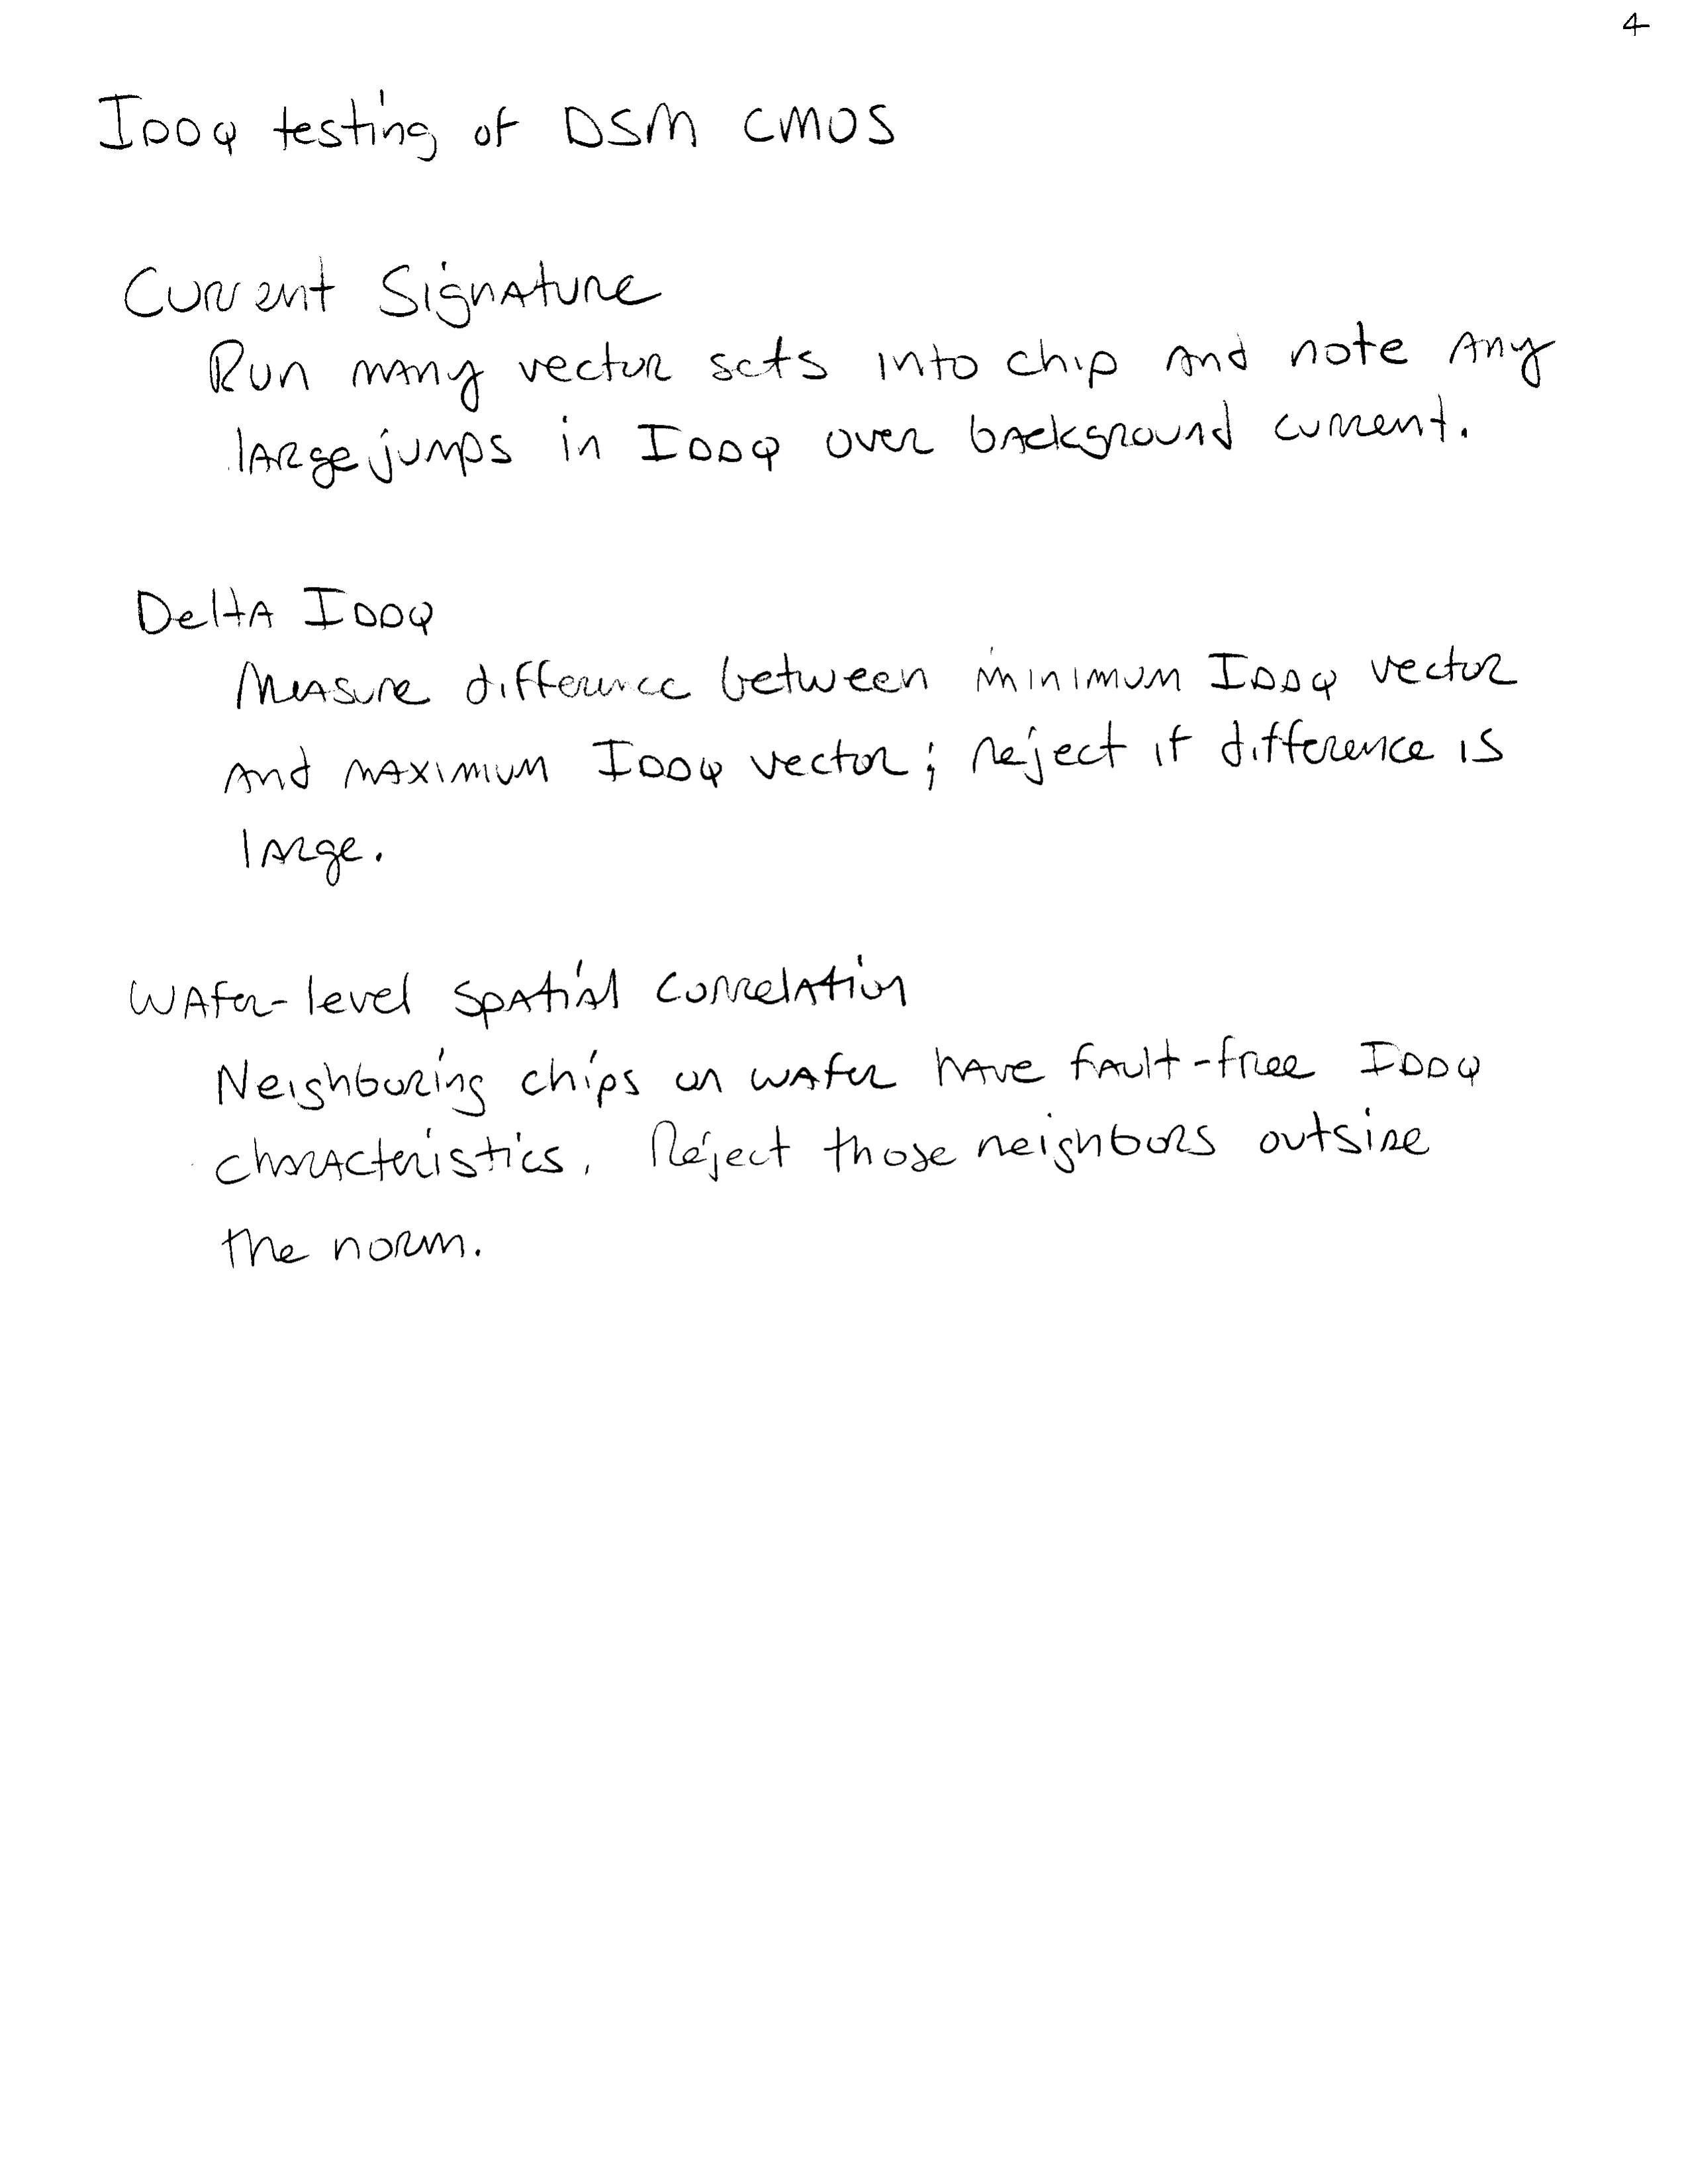 4
IDDQ testing of DSM CMOS
Current Signature
Run many vector sets into chip and note any
large jumps in IDDQ over background current.
Delta IDDQ
Measure difference between minimum IDDQ vector
and maximum IDDQ vector; reject if difference is
large.
Wafer-level spatial correlation
Neighboring chips on wafer have fault-free IDDQ
characteristics. Reject those neighbors outside
the norm.